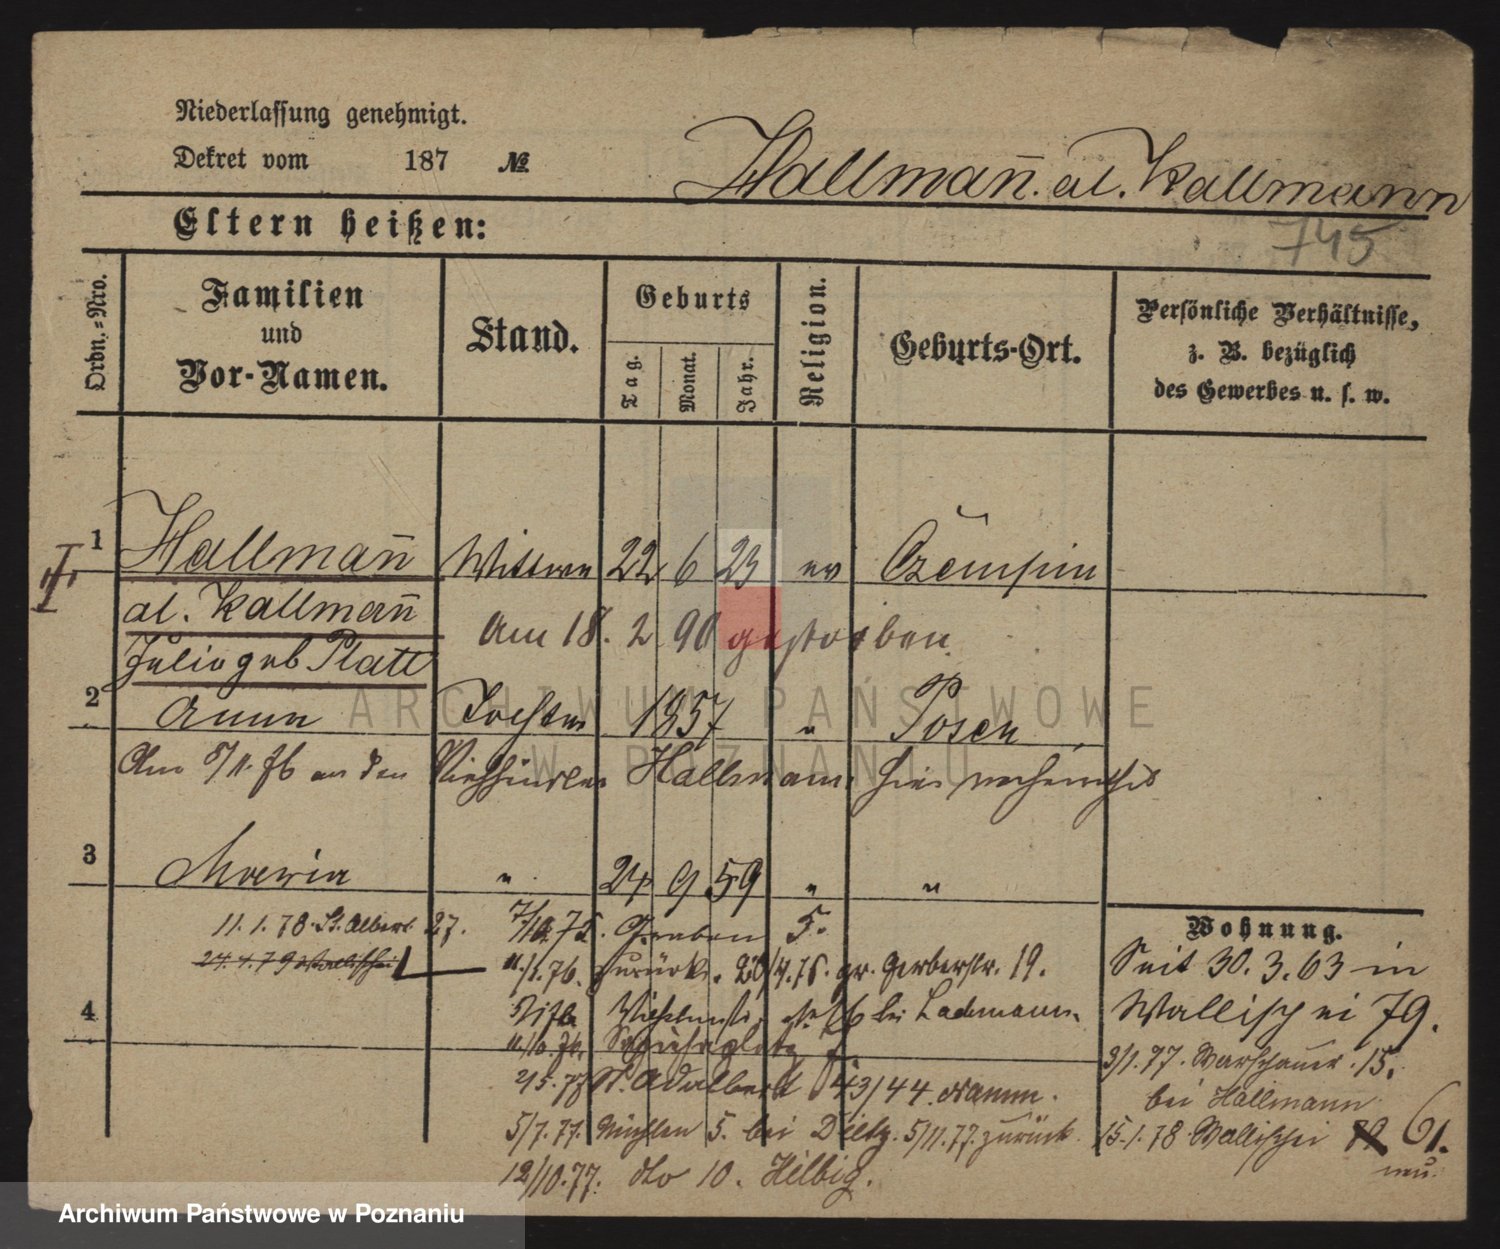 Niederlassung genehmigt.
Dekret vom 187 №
Hallmann. al. Kallmann
745
Eltern heißen:
Ordn.-Nro.
Familien
und
Vor-Namen.
Stand.
Geburts
Tag.
Monat.
Jahr.
Religion.
Geburts-Ort.
Persönliche Verhältnisse,
z. B. bezüglich
des Gewerbes u. s. w.
1 Hallmann Wittwe 22 6 23 ev Czempin
al. Kallmann
Am 18. 2 90 gestorben
Julie geb Platt
2 Anna Tochter 1857 " Posen
Am 8/11.76 an den Viehhändler Hallmann hier verheirathet
3 Maria " 24 9 59 " "
11. 1. 78. St. Albert 27. 7/10 75. Graben 5.
24. 4. 79 Wallischei 1
11/1. 76. zurück. 20/4.76. gr. Gerberstr. 19.
bei Lademann.
4
Sapiehaplatz 7.
2/5. 77 St. Adalbert 43/44. Namm.
5/7. 77. Mühlen 5. bei Dietz. 5/11.77. zurück
12/10.77. dto 10. Helbig.
Wohnung.
Seit 30. 3. 63 in
Wallischei 79.
3/1. 77. Warschauer. 15.
bei Hallmann
15. 1. 78 Wallischei 79 61.
neu.
ARCHIWUM PAŃSTWOWE
W POZNANIU
Archiwum Państwowe w Poznaniu